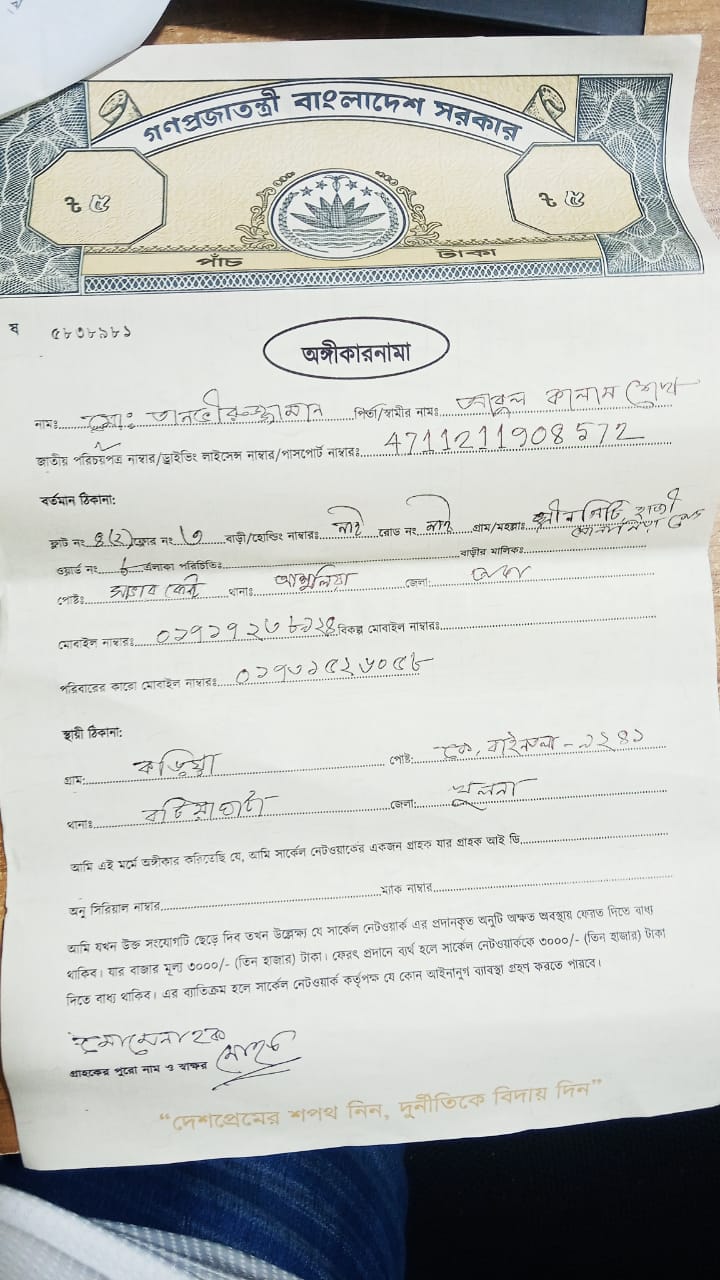 গণপ্রজাতন্ত্রী বাংলাদেশ সরকার
৳ ৫ ৳ ৫
পাঁচ টাকা
ষ ৫৮৩৮৯৮১
অঙ্গীকারনামা
নামঃ মোঃ তানভীরুজ্জামান পিতা/স্বামীর নামঃ আবুল কালাম শেখ
জাতীয় পরিচয়পত্র নাম্বার/ড্রাইভিং লাইসেন্স নাম্বার/পাসপোর্ট নাম্বারঃ 4711211908572
বর্তমান ঠিকানা:
ফ্লাট নং ৪(২) ফ্লোর নং ৩ বাড়ী/হোল্ডিং নাম্বারঃ নাই রোড নং নাই গ্রাম/মহল্লাঃ গ্রীন সিটি
ওয়ার্ড নং এলাকা পরিচিতিঃ বাড়ীর মালিকঃ
পোষ্টঃ থানাঃ আশুলিয়া জেলা: ঢাকা
মোবাইল নাম্বারঃ বিকল্প মোবাইল নাম্বারঃ
পরিবারের কারো মোবাইল নাম্বারঃ
স্থায়ী ঠিকানা:
গ্রাম: কড়িয়া পোষ্ট:
থানাঃ বটিয়াঘাটা জেলা: খুলনা
আমি এই মর্মে অঙ্গীকার করিতেছি যে, আমি সার্কেল নেটওয়ার্কের একজন গ্রাহক যার গ্রাহক আই ডি
অনু সিরিয়াল নাম্বার ম্যাক নাম্বার
আমি যখন উক্ত সংযোগটি ছেড়ে দিব তখন উল্লেক্ষ্য যে সার্কেল নেটওয়ার্ক এর প্রদানকৃত অনুটি অক্ষত অবস্থায় ফেরত দিতে বাধ্য
থাকিব। যার বাজার মূল্য ৩০০০/- (তিন হাজার) টাকা। ফেরৎ প্রদানে ব্যর্থ হলে সার্কেল নেটওয়ার্ককে ৩০০০/- (তিন হাজার) টাকা
দিতে বাধ্য থাকিব। এর ব্যতিক্রম হলে সার্কেল নেটওয়ার্ক কর্তৃপক্ষ যে কোন আইনানুগ ব্যাবস্থা গ্রহণ করতে পারবে।
গ্রাহকের পুরো নাম ও স্বাক্ষর
“দেশপ্রেমের শপথ নিন, দুর্নীতিকে বিদায় দিন”